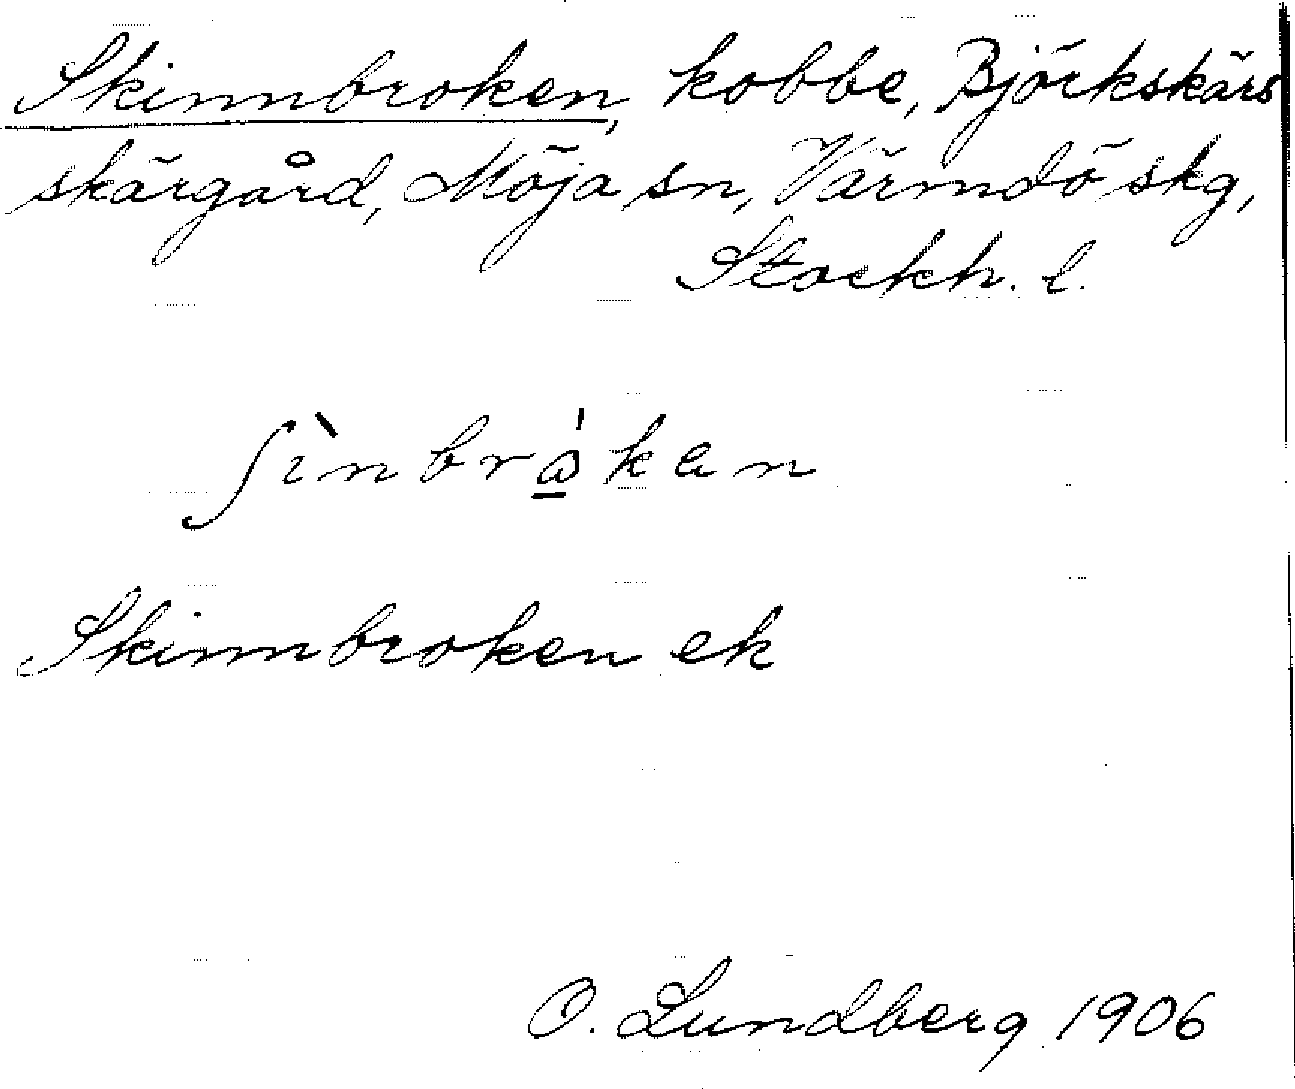 Skinnbroken, kobbe, Björkskärs
skärgård, Möja sn, Värmdö skg,
Stockh. l.
ʃìnbrɷ̠̀kan
Skinnbroken ek
O. Lundberg 1906